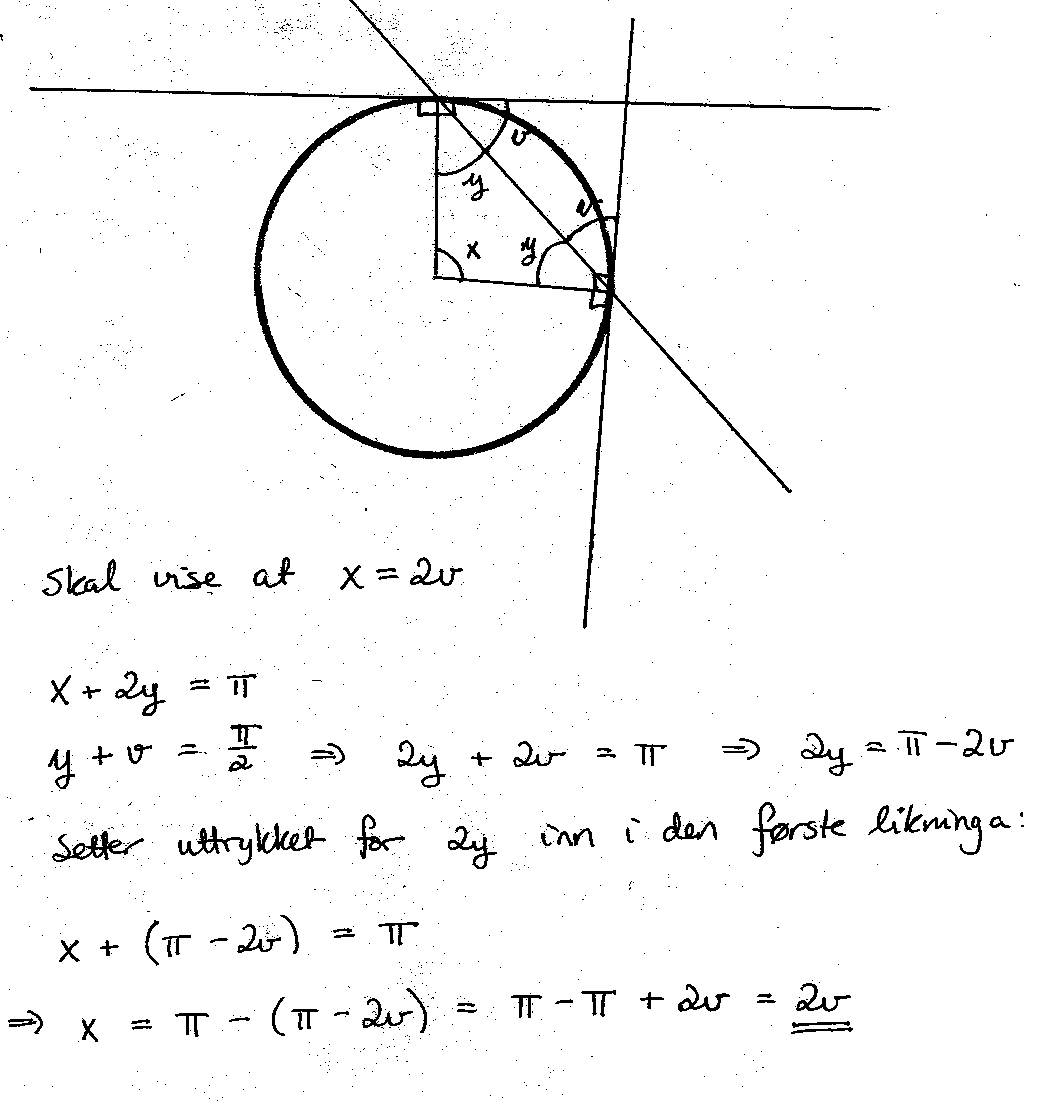 v
y
v
x
y
Skal vise at x = 2v
x + 2y = π
y + v = π/2 ⇒ 2y + 2v = π ⇒ 2y = π - 2v
Setter uttrykket for 2y inn i den første likninga:
x + (π - 2v) = π
⇒ x = π - (π - 2v) = π - π + 2v = 2v